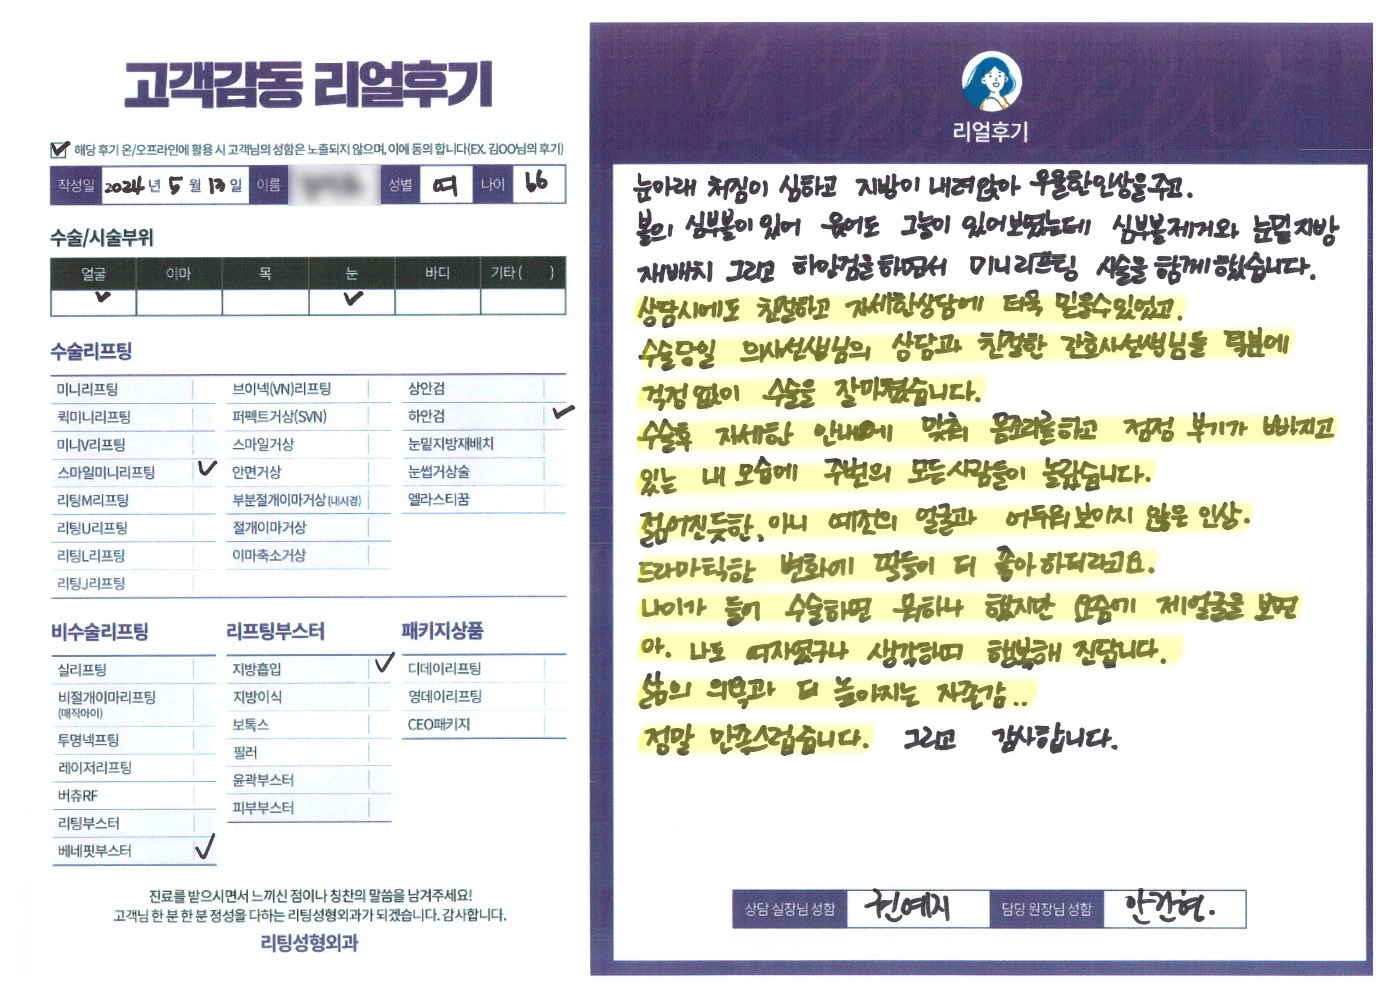 고객감동 리얼후기
해당 후기 온/오프라인에 활용 시 고객님의 성함은 노출되지 않으며, 이에 동의 합니다(EX. 김OO님의 후기)
작성일 2024 년 5 월 13 일 이름 성별 여 나이 66
수술/시술부위
얼굴 이마 목 눈 바디 기타 ( )
수술리프팅
미니리프팅 브이넥(VN)리프팅 상안검
퀵미니리프팅 퍼펙트거상(SVN) 하안검
미니V리프팅 스마일거상 눈밑지방재배치
스마일미니리프팅 안면거상 눈썹거상술
리팅M리프팅 부분절개이마거상(내시경) 엘라스티꿈
리팅U리프팅 절개이마거상
리팅L리프팅 이마축소거상
리팅J리프팅
비수술리프팅 리프팅부스터 패키지상품
실리프팅 지방흡입 디데이리프팅
비절개이마리프팅 지방이식 영데이리프팅
(매직아이)
투명넥프팅 보톡스 CEO패키지
레이저리프팅 필러
버츄RF 윤곽부스터
리팅부스터 피부부스터
베네핏부스터
진료를 받으시면서 느끼신 점이나 칭찬의 말씀을 남겨주세요!
고객님 한 분 한 분 정성을 다하는 리팅성형외과가 되겠습니다. 감사합니다.
리팅성형외과
리얼후기
눈아래 처짐이 심하고 지방이 내려앉아 우울한인상을주고.
볼의 심부볼이있어 웃어도 그늘이 있어보였는데 심부볼제거와 눈밑지방
재배치 그리고 하안검을하면서 미니리프팅 시술을 함께했습니다.
상담시에도 친절하고 자세한상담에 더욱 믿을수있었고.
수술당일 의사선생님의 상담과 친절한 간호사선생님들 덕분에
걱정없이 수술을 잘마쳤습니다.
수술후 자세한 안내에 맞춰 몸조리를하고 점점 붓기가 빠지고
있는 내 모습에 주변의 모든사람들이 놀랐습니다.
젊어진듯한, 아니 예전의 얼굴과 어두워보이지 않은 인상.
드라마틱한 변화에 딸들이 더 좋아하더라고요.
나이가 들어 수술하면 뭐하나 했지만 요즘에 제얼굴을 보면
아. 나도 여자였구나 생각하며 행복해 진답니다.
삶의 의욕과 더 높아지는 자존감..
정말 만족스럽습니다. 그리고 감사합니다.
상담 실장님 성함 권예지 담당 원장님 성함 안건형.